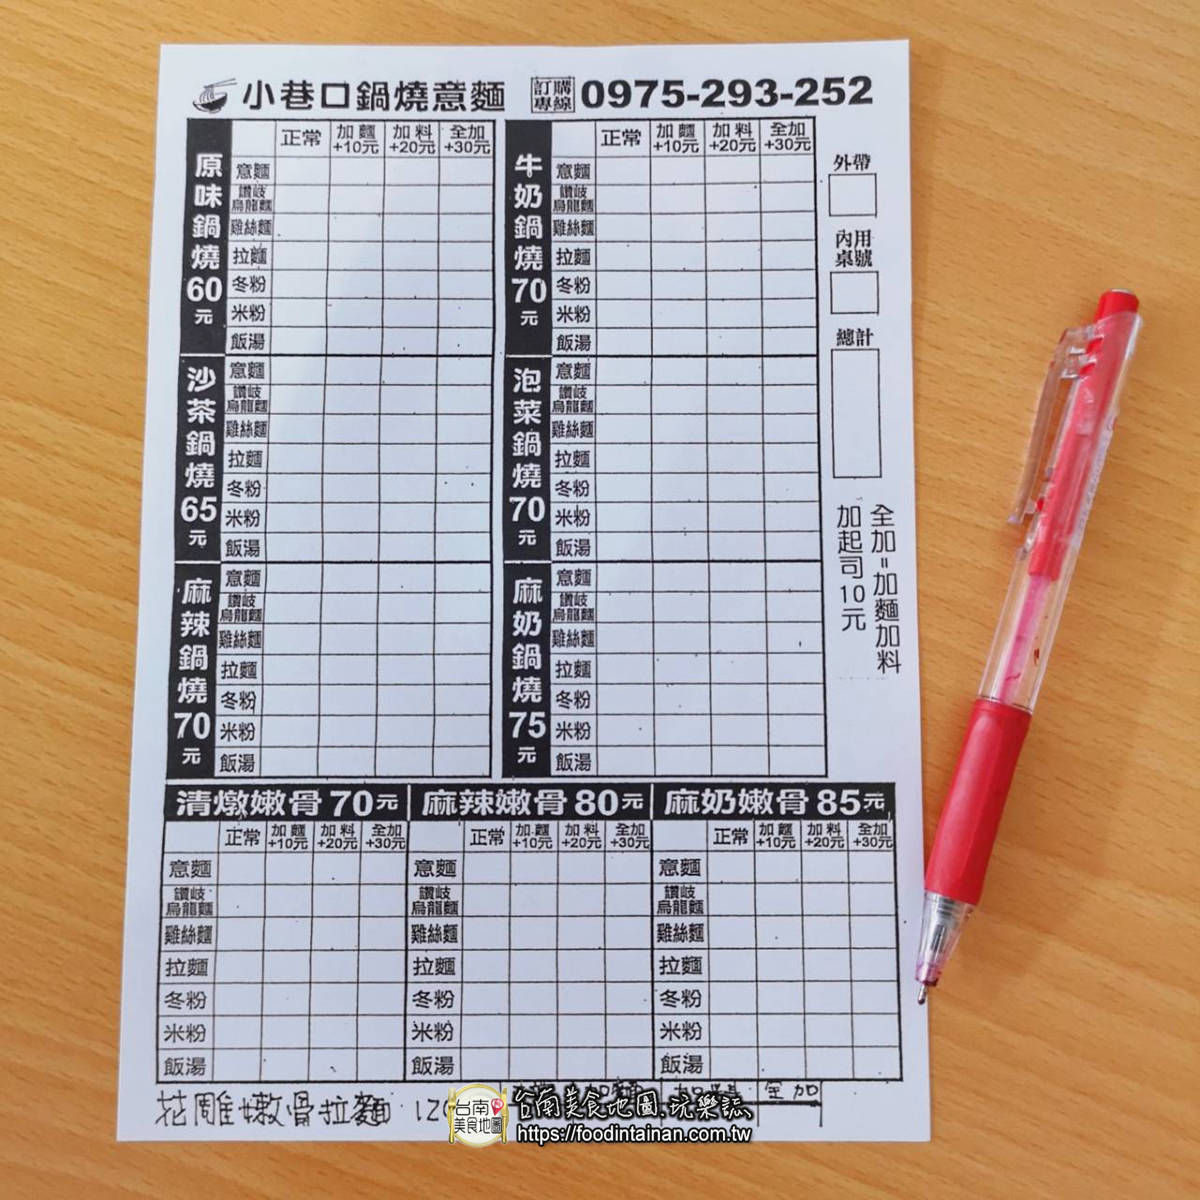 小巷口鍋燒意麵 訂購專線 0975-293-252
原味鍋燒60元
正常 加麵+10元 加料+20元 全加+30元
意麵
讚岐烏龍麵
雞絲麵
拉麵
冬粉
米粉
飯湯
沙茶鍋燒65元
意麵
讚岐烏龍麵
雞絲麵
拉麵
冬粉
米粉
飯湯
麻辣鍋燒70元
意麵
讚岐烏龍麵
雞絲麵
拉麵
冬粉
米粉
飯湯
牛奶鍋燒70元
正常 加麵+10元 加料+20元 全加+30元
意麵
讚岐烏龍麵
雞絲麵
拉麵
冬粉
米粉
飯湯
泡菜鍋燒70元
意麵
讚岐烏龍麵
雞絲麵
拉麵
冬粉
米粉
飯湯
麻奶鍋燒75元
意麵
讚岐烏龍麵
雞絲麵
拉麵
冬粉
米粉
飯湯
外帶
內用桌號
總計
全加=加麵加料
加起司10元
清燉嫩骨70元
正常 加麵+10元 加料+20元 全加+30元
意麵
讚岐烏龍麵
雞絲麵
拉麵
冬粉
米粉
飯湯
麻辣嫩骨80元
正常 加麵+10元 加料+20元 全加+30元
意麵
讚岐烏龍麵
雞絲麵
拉麵
冬粉
米粉
飯湯
麻奶嫩骨85元
正常 加麵+10元 加料+20元 全加+30元
意麵
讚岐烏龍麵
雞絲麵
拉麵
冬粉
米粉
飯湯
花雕嫩骨拉麵
全加
台南美食地圖
台南美食地圖.玩樂誌
https://foodintainan.com.tw